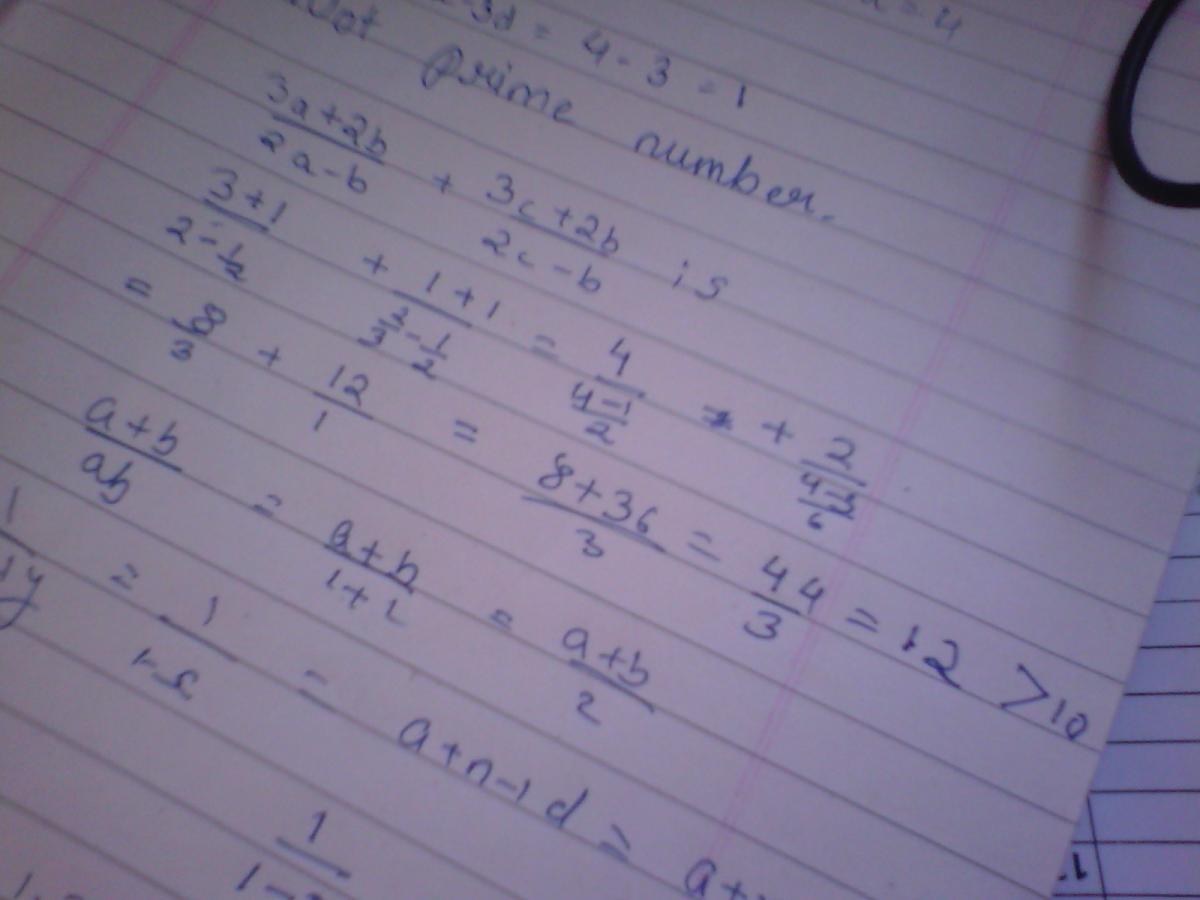 3d = 4 - 3 = 1
= 4
Not prime number.
3a+2b/2a-b + 3c+2b/2c-b is
3+1/2-1/2 + 1+1/2/3-1/2 = 4/4-1/2 + 2/4-3/6
= 8/3 + 12/1 = 8+36/3 = 44/3 = 12 > 10
a+b/ab = a+b/1+1 = a+b/2
1/ty = 1/1-r = a+n-1 d = a+
1/1-